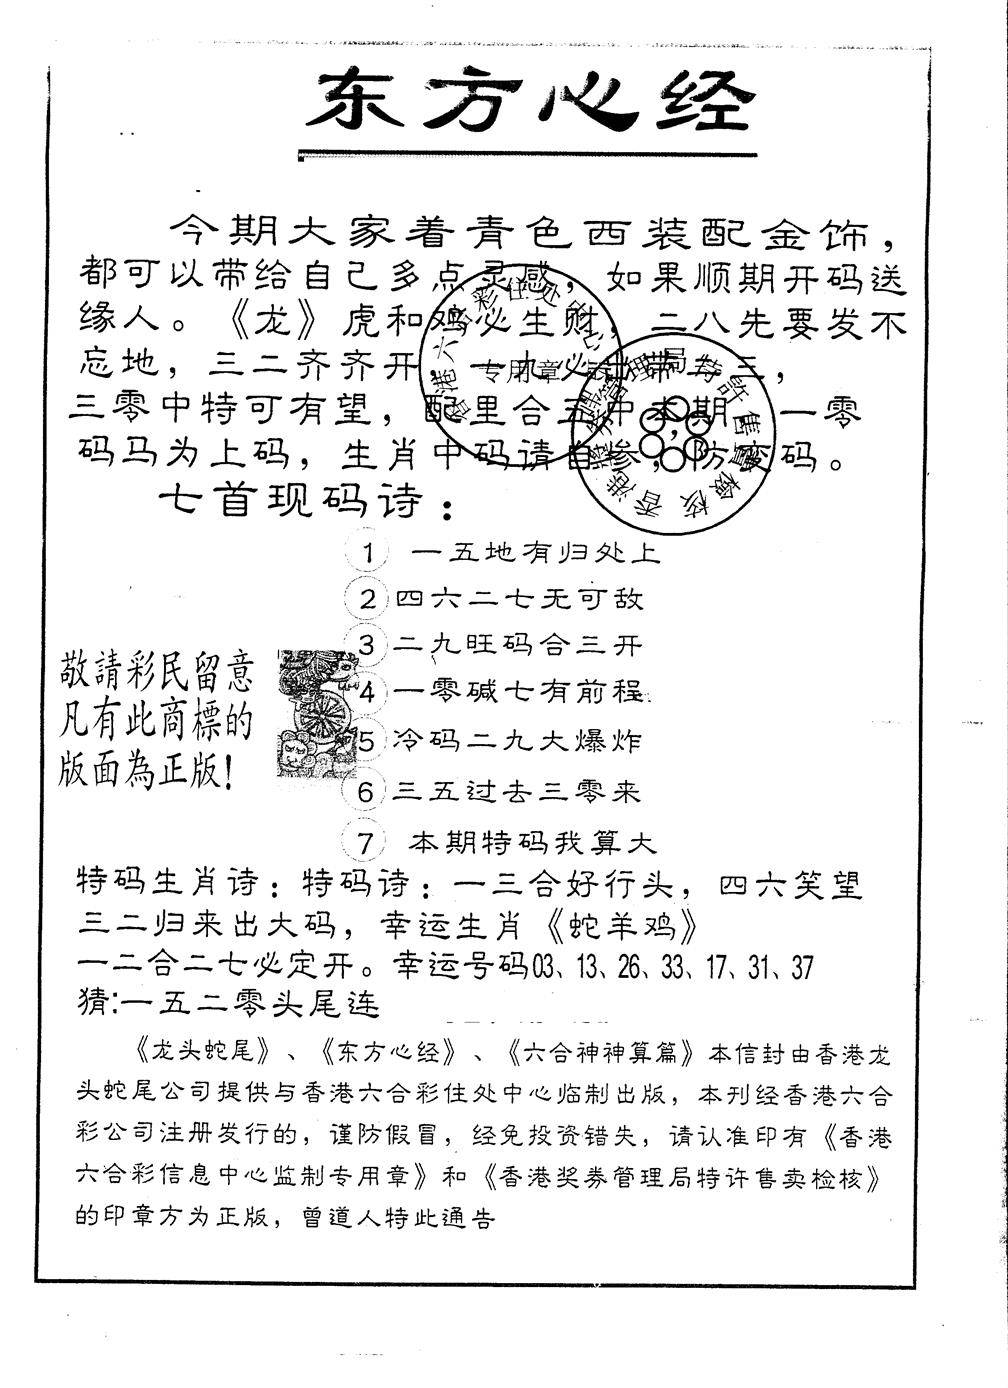 东方心经
今期大家着青色西装配金饰，
都可以带给自己多点灵感，如果顺期开码送
缘人。《龙》虎和鸡必生财，二八先要发不
忘地，三二齐齐开，一九必出带一三，
三零中特可有望，配里合五中本期，一零
码马为上码，生肖中码请自参，防 码。
七首现码诗：
1 一五地有归处上
2 四六二七无可敌
3 二九旺码合三开
敬請彩民留意
凡有此商標的
版面為正版！
4 一零碱七有前程
5 冷码二九大爆炸
6 三五过去三零来
7 本期特码我算大
特码生肖诗：特码诗：一三合好行头，四六笑望
三二归来出大码，幸运生肖《蛇羊鸡》
一二合二七必定开。幸运号码03、13、26、33、17、31、37
猜:一五二零头尾连
《龙头蛇尾》、《东方心经》、《六合神神算篇》本信封由香港龙
头蛇尾公司提供与香港六合彩住处中心临制出版，本刊经香港六合
彩公司注册发行的，谨防假冒，经免投资错失，请认准印有《香港
六合彩信息中心监制专用章》和《香港奖券管理局特许售卖检核》
的印章方为正版，曾道人特此通告
香港六合彩住处中心
专用章
香港獎券管理局特許售賣檢核